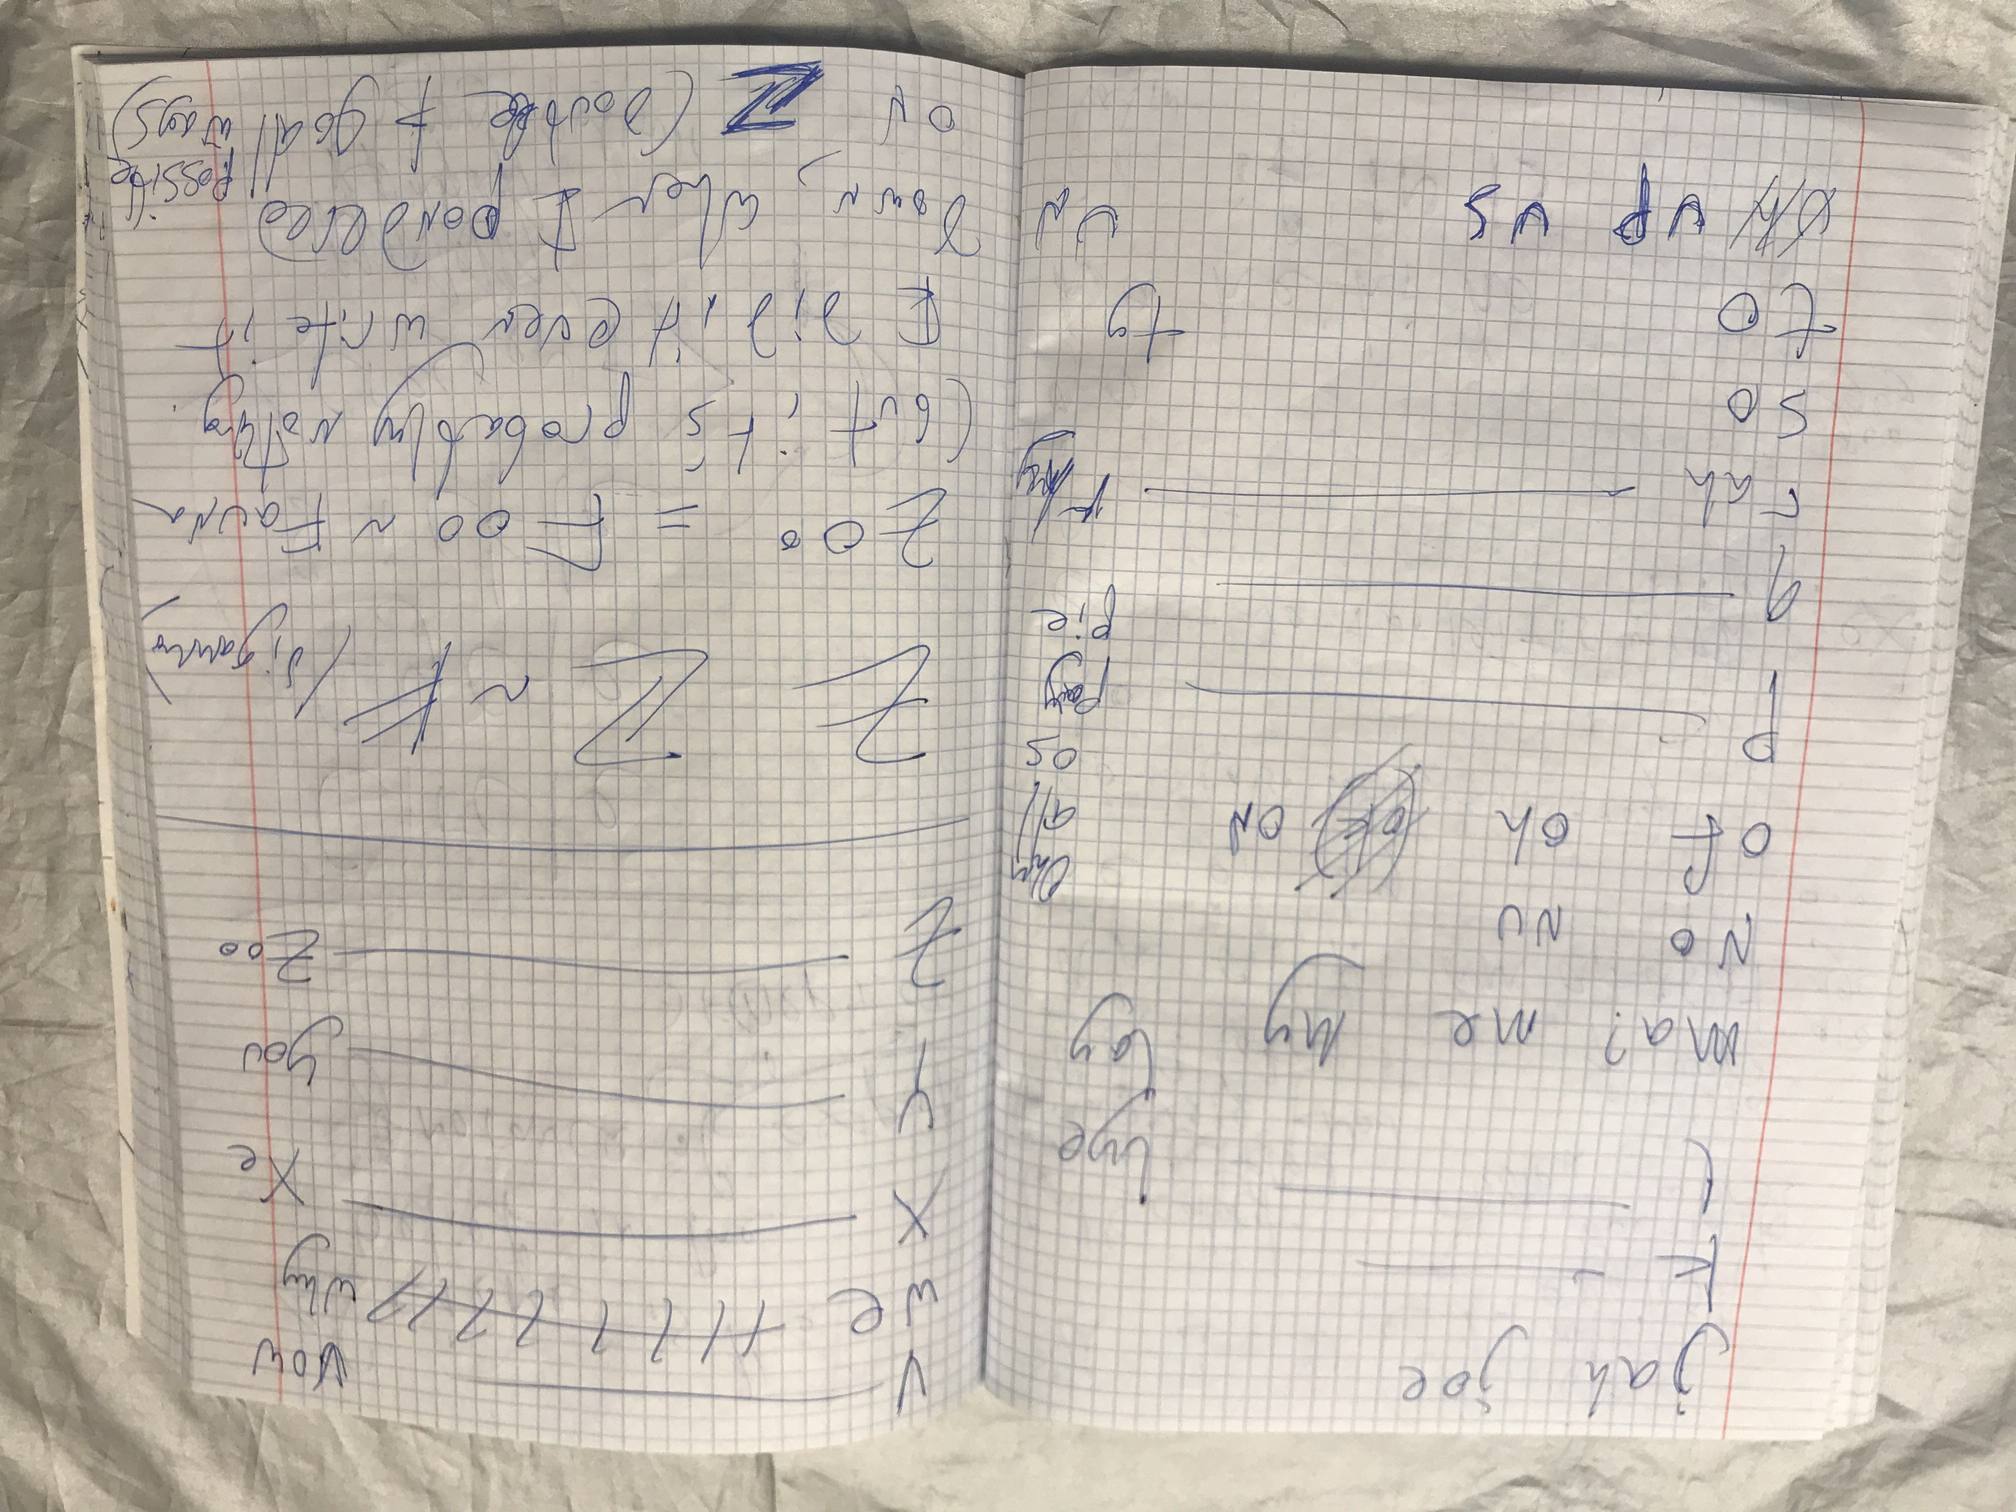 jah joe
K
L lye
ma? me my lay
No NU
Of Oh ON
all
so
P pay
pie
q
rah
so
to ty
up us un
V vow
we why
X Xe
Y you
Z Zoo
Z Z ~ F (digamma)
Zoo = Foo ~ Fauna
(but it's probably nothing
I did it even write it
down, when I pondered)
on Z (Double f goal possible ways)